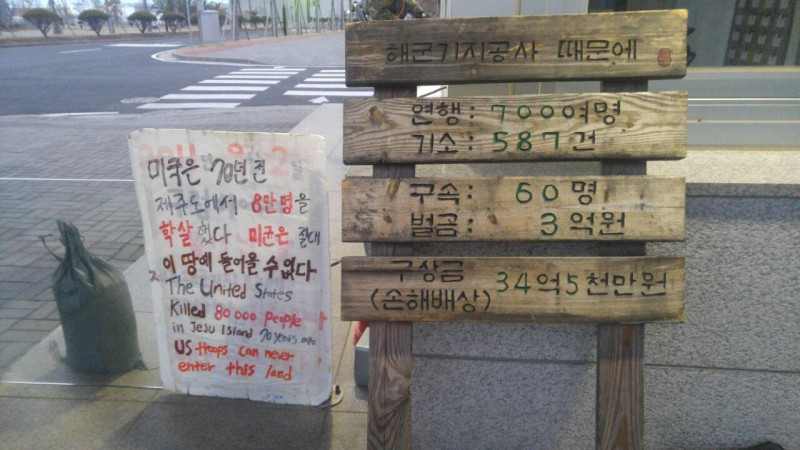 미국은 70년 전
제주도에서 8만명을
학살했다 미군은 절대
이 땅에 들어올 수 없다
The United States
Killed 80000 people
in Jeju Island 70 years ago
US troops can never
enter this land
해군기지공사 때문에
연행: 700여명
기소: 587건
구속: 60명
벌금: 3억원
구상금
(손해배상) 34억5천만원